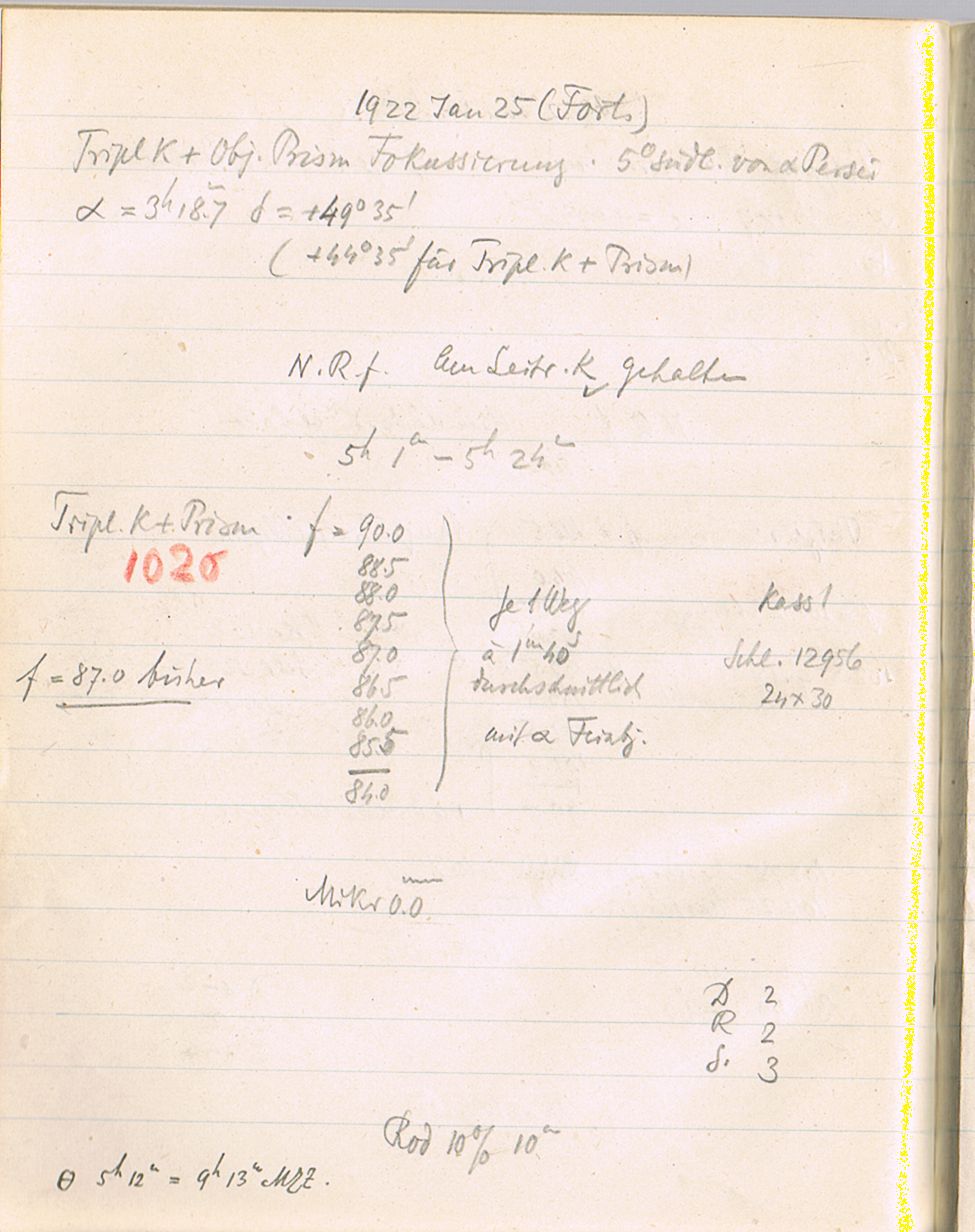 1922 Jan 25 (Forts.)
Tripl K + Obj. Prism Fokussierung. 5° südl. von α Persei
α = 3h 18.7m δ = +49° 35'
(+44° 35' für Tripl. K + Prism)
N.R.f. Am Leitr. K gehalten
5h 1m – 5h 24m
Tripl. K + Prism f = 90.0
1026
88.5
88.0
87.5
87.0
f = 87.0 bisher
86.5
86.0
85.5
84.0
je 1 Weg
à 1m 40s
durchschnittlich
mit α
Kass 1
Schl. 12956
24 x 30
Mikr 0.0 mm
D 2
R 2
S. 3
Rod 10% 10m
θ 5h 12m = 9h 13m MZZ.